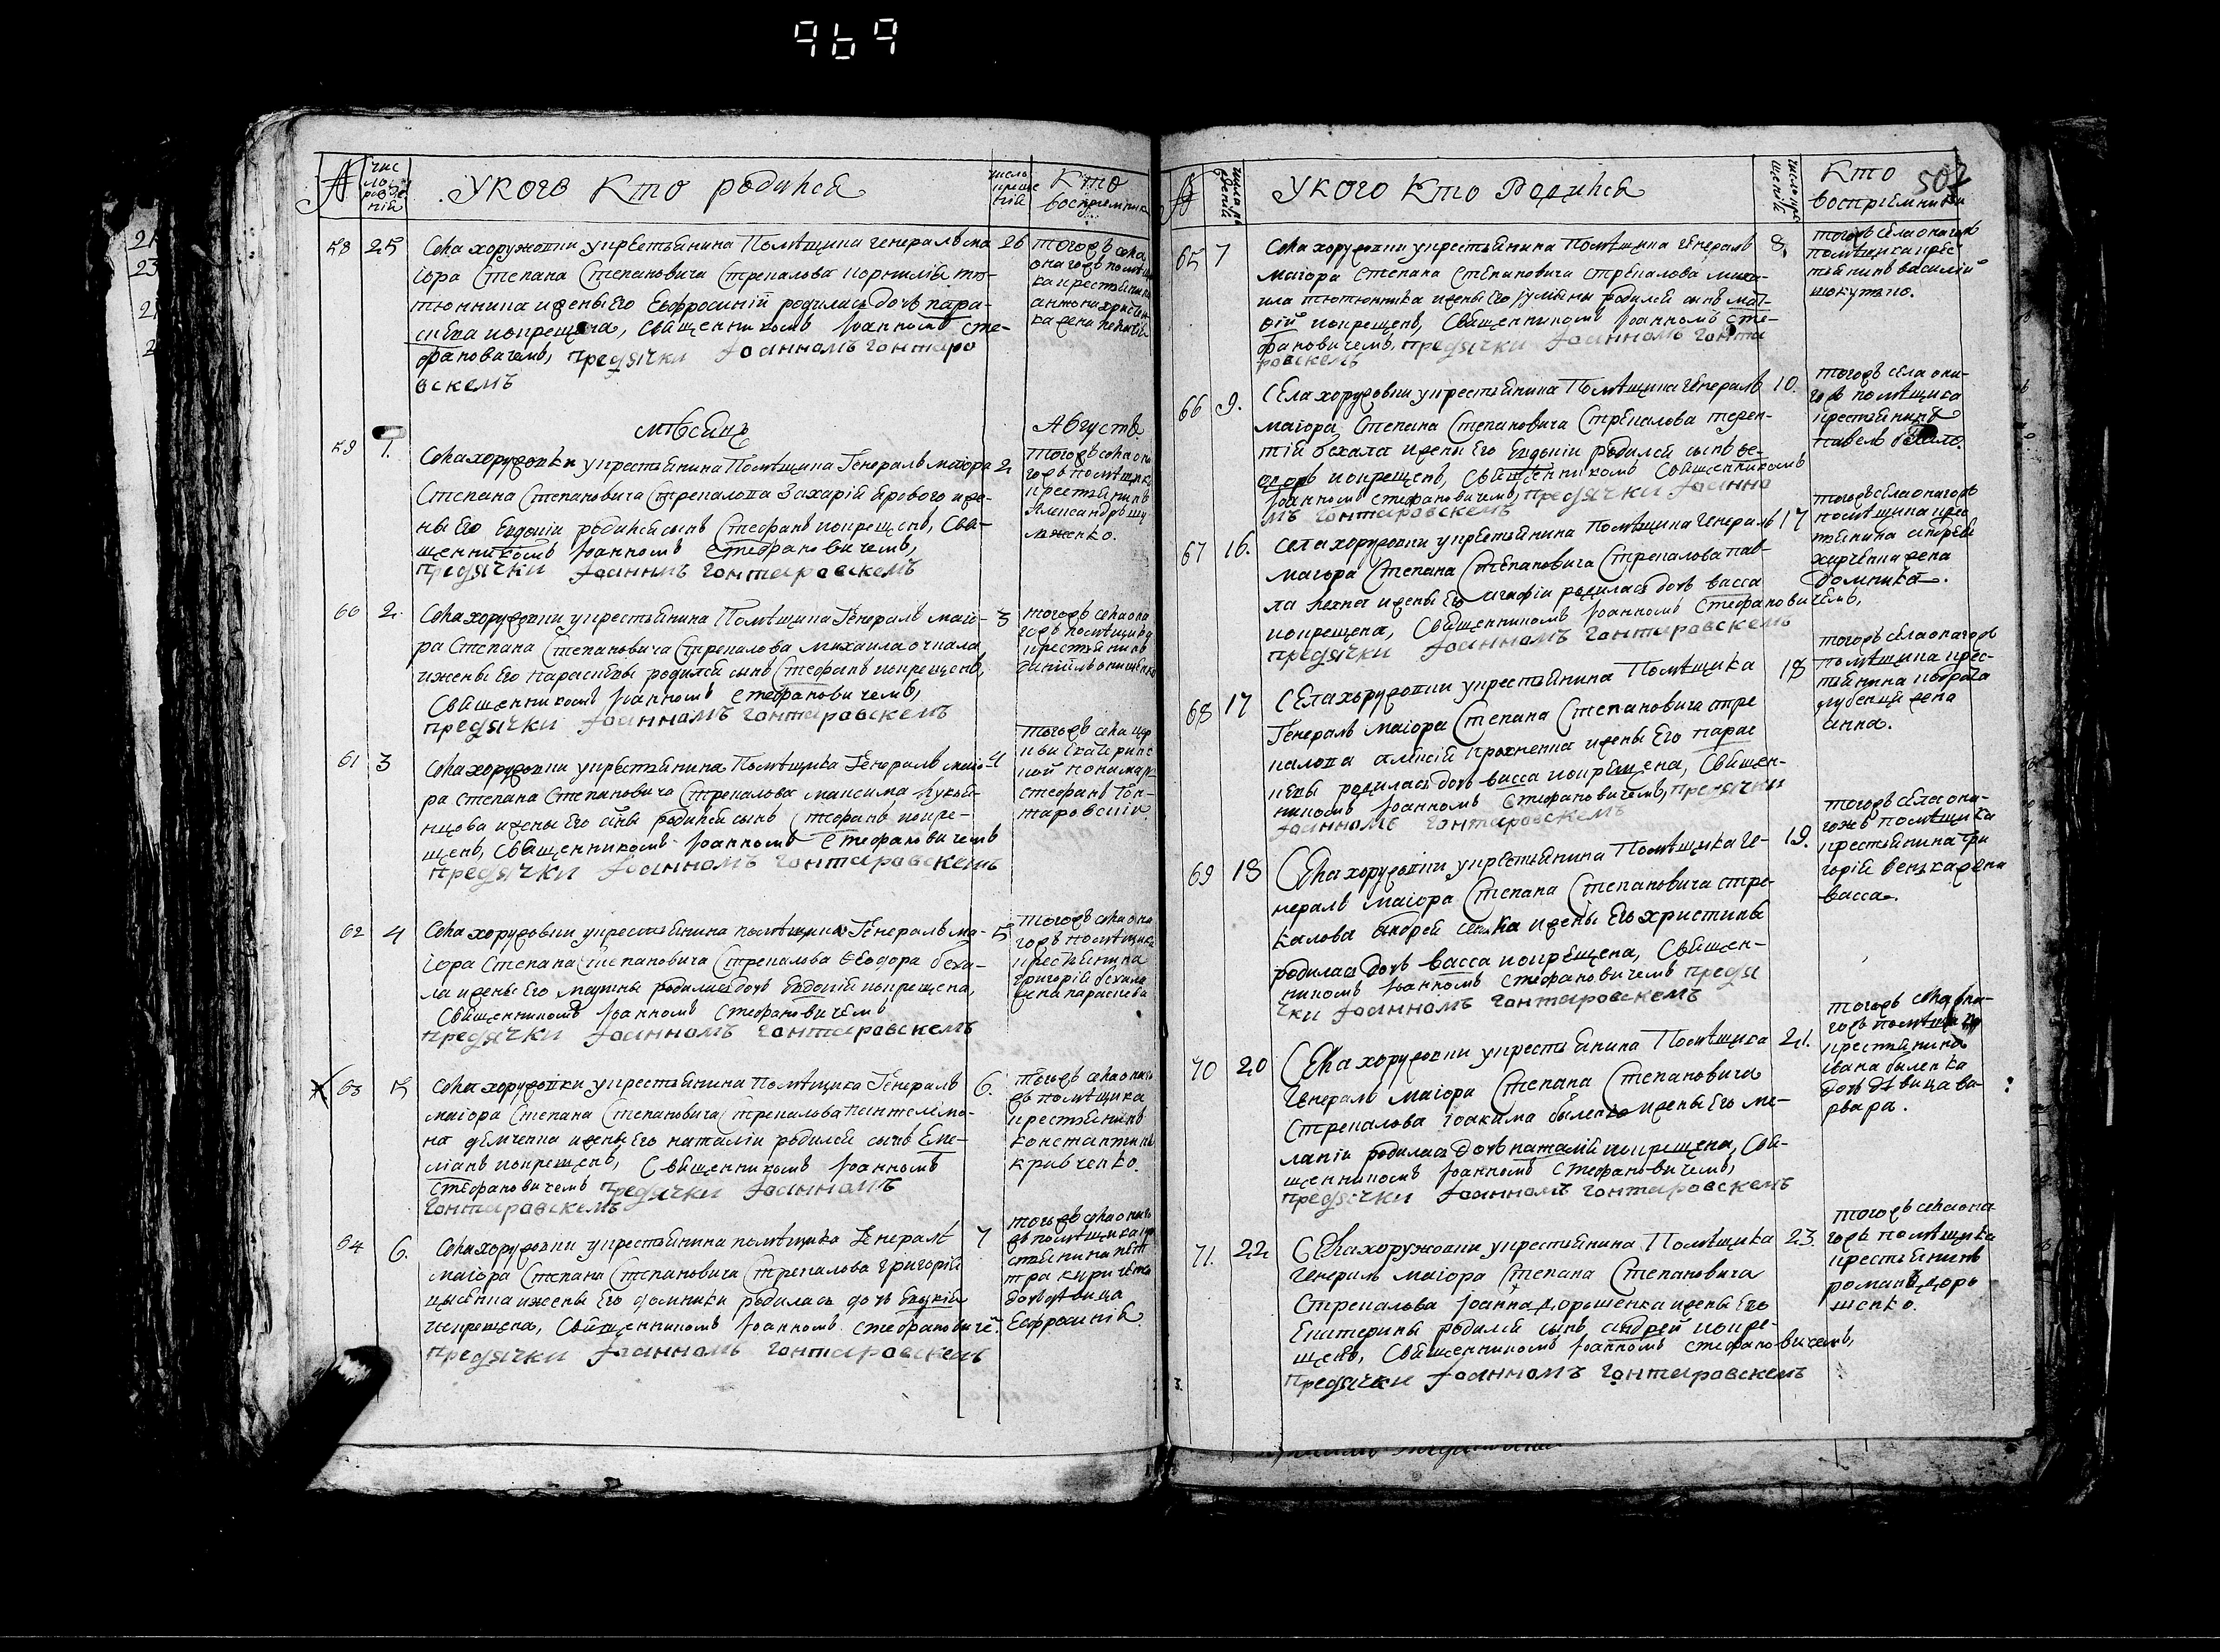 969
№
чис
ло
рожде
ній
У кого кто родился
число
креще
ній
Кто
воспріемник
58 25 Села хоружовки у крестьянина Помѣщика генералъ ма 26
іора Степана Степановича Стрекалова Корнилія тю-
тюнника и жены его Евфросиніи родилась дочь пара-
скева и окрещена, Священникомъ Іоанномъ Сте-
фановичемъ, при дячки Іоанномъ Гонтаро
вскемъ
тогожъ села
онагожъ помѣщи
ка крестьянина
жена
мѣсяцъ Августъ
59 1. Села хоружовки у крестьянина Помѣщика Генералъ маіора 2
Степана Степановича Стрекалова Захарій Ярового и же-
ны Его Евдокіи родился сынъ Стефанъ и окрещенъ, Свя-
щенникомъ Іоанномъ Стефановичемъ,
при дячки Іоаннмъ Гонтаровскемъ
тогожъ села она
гожъ помѣщика
крестьянинъ
Александръ шу
женко.
60 2. Села хоружовки у крестьянина Помѣщика Генералъ маіо- 3
ра Степана Степановича Стрекалова Михаила очкала
и жены Его Параскевы родился сынъ Стефанъ и окрещенъ,
Священникомъ Іоанномъ Стефановичемъ,
при дячки Іоанномъ Гонтаровскемъ
тогожъ села она
гожъ помѣщика
крестьянинъ
даніилъ
61 3 Села хоружовки у крестьянина Помѣщика Генералъ маіо- 4
ра Степана Степановича Стрекалова Максима Лукьян-
нцова и жены Его Анны родился сынъ Стефанъ и окре-
щенъ, Священникомъ Іоанномъ Стефановичемъ
при дячки Іоанномъ Гонтаровскемъ
тогожъ села цер
кви Екатерини
ской понамарь
стефанъ Гон-
таровскій
62 4 Села хоружовки у крестьянина помѣщика Генералъ ма- 5
іора Степана Степановича Стрекалова Феодора беха-
ла и жены Его родилась дочь Евдокія и окрещена,
Священникомъ Іоанномъ Стефановичемъ
при дячки Іоанномъ Гонтаровскемъ
тогожъ села она
гожъ помѣщика
крестьянина
григорій бехала
жена параскева
63 5 Села хоружовки у крестьянина помѣщика Генералъ 6.
маіора Степана Степановича Стрекалова пантелимо-
на демченка и жены Его наталіи родился сынъ Еме-
ліанъ и окрещенъ, Священникомъ Іоанномъ
Стефановичемъ при дячки Іоанномъ
Гонтаровскемъ
тогожъ села онаго
жъ помѣщика
крестьянинъ
константинъ
кривченко.
64 6. Села хоружовки у крестьянина помѣщика Генералъ 7
маіора Степана Степановича Стрекалова григорій
цыбенка и жены Его домники родилась дочь
и окрещена, Священникомъ Іоанномъ Стефанович.
при дячки Іоанномъ Гонтаровскемъ
тогожъ села онаго
жъ помѣщика кре
стьянина пет
тра
дочь дѣвица
Евфросинія.
№
У кого кто Родился
Кто
воспріемники
507
65 7 Села хоружовки у крестьянина Помѣщика Генералъ 8.
маіора Степана Степановича Стрекалова миха-
ила тютюнника и жены Его Іуліяны родился сынъ мат-
фій и окрещенъ, Священникомъ Іоанномъ Сте-
фановичемъ, при дячки Іоанномъ Гонта
ровскемъ
тогожъ села онагожъ
помѣщика крес
тьянинъ василій
66 9. СЕла хоружовки у крестьянина Помѣщика Генералъ 10.
маіора Степана Степановича Стрекалова терен-
тій бехала и жены Его Евдокіи родился сынъ Фе-
доръ и окрещенъ, Священникомъ Священникомъ
Іоанномъ Стефановичемъ, при дячки Іоанно
мъ Гонтаровскемъ
тогожъ села она-
гожъ помѣщика
крестьянинъ
Павелъ бехало.
67 16. Села хоружовки у крестьянина Помѣщика Генералъ 17
маіора Степана Степановича Стрекалова пав-
ла и жены Его агафіи родилась дочь васса
и окрещена, Священникомъ Іоанномъ Стефановичемъ,
при дячки Іоанномъ Гонтаровскемъ
тогожъ села онагожъ
помѣщика крес
тьянина андрея
жена
домника.
68 17 СЕла хоружовки у крестьянина Помѣщика 18
Генералъ маіора Степана Степановича Стре
калова алексій Прохненка и жены Его парас
кевы родилась дочь васса и окрещена, Священ-
никомъ Іоанномъ Стефановичемъ, при дячки
Іоанномъ Гонтаровскемъ
тогожъ села онагожъ
помѣщика крес-
тьянина
жена
анна.
69 18 СЕла хоружовки у крестьянина Помѣщика ге- 19.
нералъ маіора Степана Степановича Стре-
калова Андрей и жены Его христины
родилась дочь васса и окрещена, Священ-
никомъ Іоанномъ Стефановичемъ при дя
чки Іоанномъ Гонтаровскемъ
тогожъ села она-
гожъ помѣщика
крестьянина Гри
горій жена
васса.
70 20 СЕла хоружовки у крестьянина Помѣщика 21.
Генералъ маіора Степана Степановича
Стрекалова Іоакима и жены Его ме-
ланіи родилась дочь наталія и окрещена, Свя-
щенникомъ Іоанномъ Стефановичемъ,
при дячки Іоанномъ Гонтаровскемъ
тогожъ села она-
гожъ помѣщика
крестьянина
ивана
дочь дѣвица ва-
рвара.
71. 22 СЕла хоружовки у крестьянина Помѣщика 23.
генералъ маіора Степана Степановича
Стрекалова Іоанна дорошенка и жены Его
Екатерины родился сынъ андрей и окре-
щенъ, Священникомъ Іоанномъ Стефановичемъ,
при дячки Іоанномъ Гонтаровскемъ
тогожъ села она
гожъ помѣщика
крестьянинъ
романъ доро
шенко.